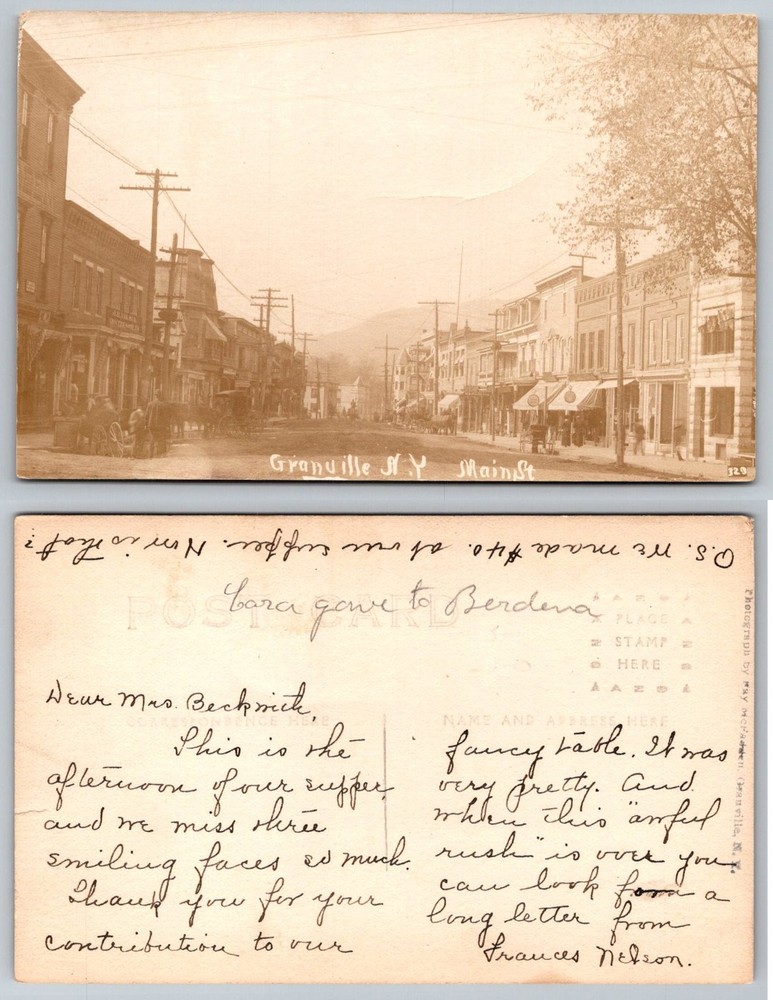 Granville N.Y Main St
129
P.S. We made $40. at our supper. How is that?
Cora gave to Berdena
POST CARD
PLACE
STAMP
HERE
Dear Mrs. Beckwith,
CORRESPONDENCE HERE
NAME AND ADDRESS HERE
This is the
afternoon of our supper,
and we miss three
smiling faces so much.
Thank you for your
contribution to our
fancy table. It was
very pretty. And
when this "awful
rush" is over you
can look form a
long letter from
Frances Nelson.
Photograph by Ray McFadden, Granville, N. Y.